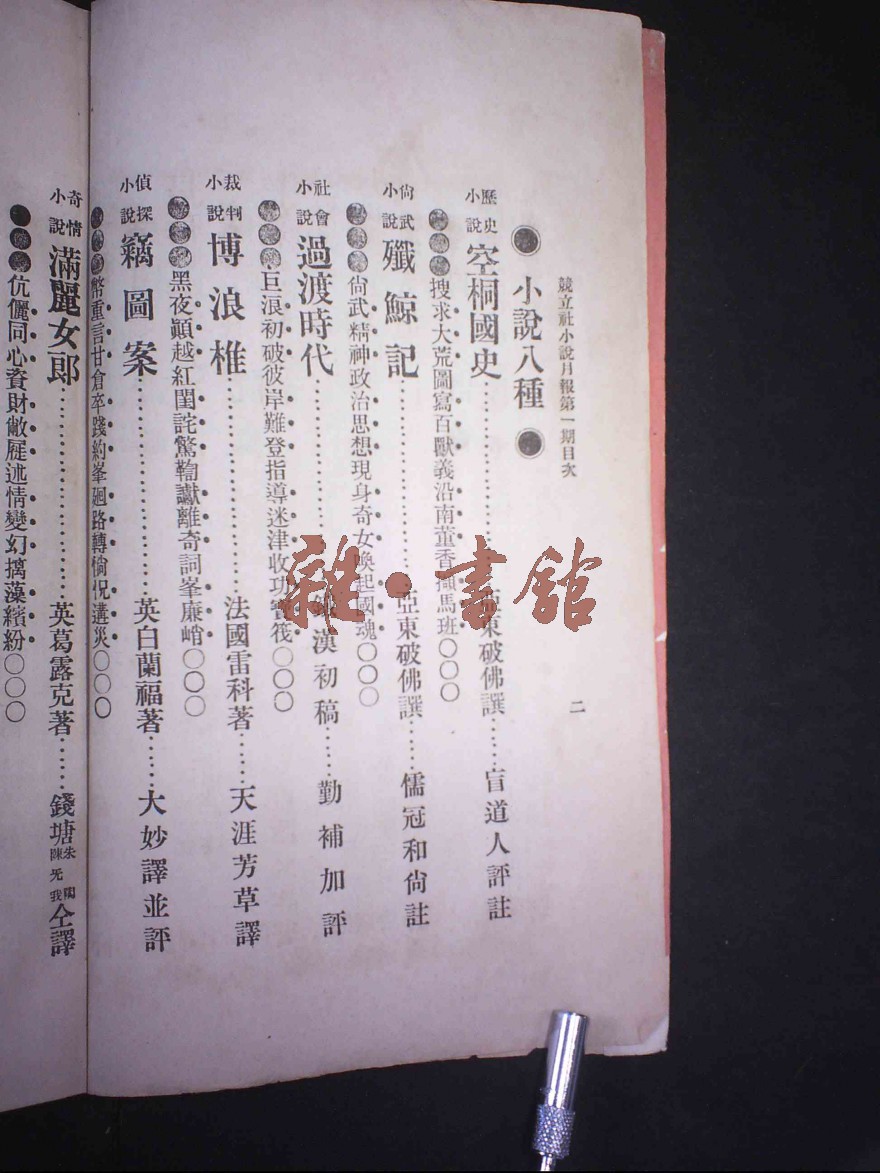 競立社小說月報第一期目次
二
●小說八種●
歷史小說 空桐國史……亞東破佛譔……盲道人評註
搜求大荒圖寫百獸義沿南董香擷馬班○○○
尙武小說 殲鯨記……亞東破佛譔……儒冠和尙註
尙武精神政治思想現身奇女喚起國魂○○○
社會小說 過渡時代……漢初稿……勤補加評
巨浪初破彼岸難登指導迷津收功寶筏○○○
裁判小說 博浪椎……法國雷科著……天涯芳草譯
黑夜顚越紅閨詫驚鞫讞離奇詞峯廉峭○○○
偵探小說 竊圖案……英白蘭福著……大妙譯並評
幣重言甘倉卒踐約峯廻路轉惝怳遘災○○○
奇情小說 滿麗女郎……英葛露克著……錢塘全譯
伉儷同心資財敝屣述情變幻摛藻繽紛○○○
雜·書館